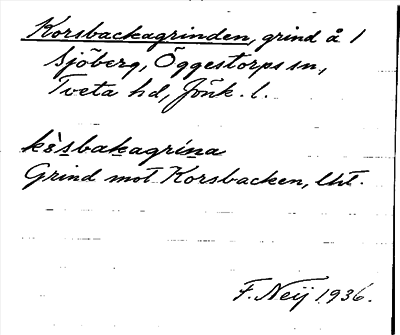 Korsbackagrinden, grind å 1
Sjöberg, Öggestorps sn,
Tveta hd, Jönk. l.
kòsbakagrina
Grind mot Korsbacken, lht.
F. Neij 1936.